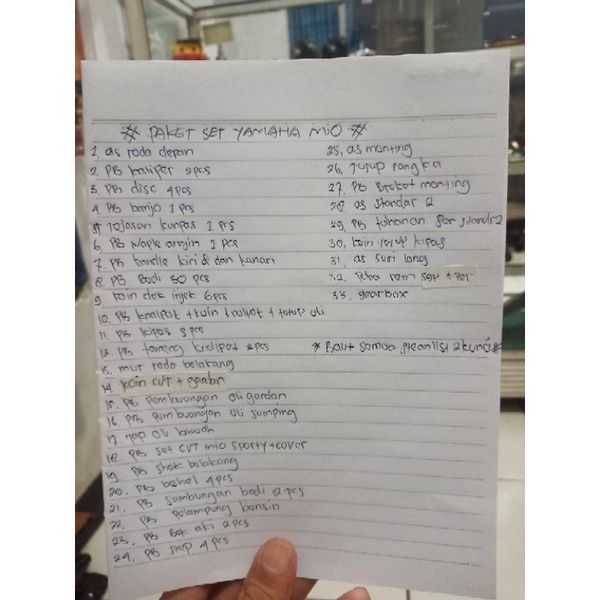 # PAKET SET YAMAHA MIO #
1, as roda depan
2. PB kaliper 2pcs
3, PB disc 4pcs
4. PB banjo 1 pcs
5. Tojosan kunpas 1 pcs
6, PB Nople angin 2 pcs
7, PB handle kiri & dan kanan
8. PB Bodi 50 pcs
9 koin dek injek 6pcs
10. PB knalpot + koin knalpot + tutup oli
11. PB kipas 3 pcs
12. PB tameng knalpot 2pcs
13. mur roda belakang
14. koin CVT + gardan
15. PB Pembuangan oli gardan
16 PB Pembuangan oli samping
17 Tap Oli bawah
18 PB set CVT mio sporty + cover
19, PB shok belakang
20. PB behel 4pcs
21, PB Sambungan bodi 2 pcs
22, PB Pelampung bensin
23, PB Bok aki 2pcs
24, PB step 4pcs
25, as monting
26, Tutup rangka
27, PB Breket monting
28, as standar 2
29, PB tahanan Per standr 2
30, koin tutup kipas
31, as suri lang
32, rem set + Per
33, gearbox
* Baut semua 2 kunci *